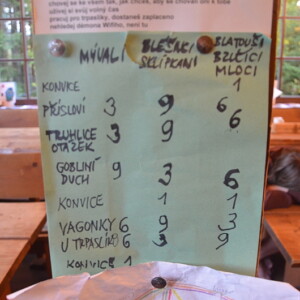 chovej se ke všem tak, jak chceš, aby se chovali oni k tobě
užívej si svůj volný čas
pracuj pro trpaslíky, dostaneš zaplaceno
nehledej démona Wifiho, není tu
MÝVALI BLEŠÁCI SKLÍPKANI BLATOUŠI BZUČÍCÍ MLOCI
KONVICE 1
PŘÍSLOVÍ 3 9 6
TRUHLICE OTÁZEK 3 9 6
GOBLINÍ DUCH 9 3 6
KONVICE 1 1
VAGONKY 6 9 3
U TRPASLÍKŮ 6 3 9
KONVICE 1